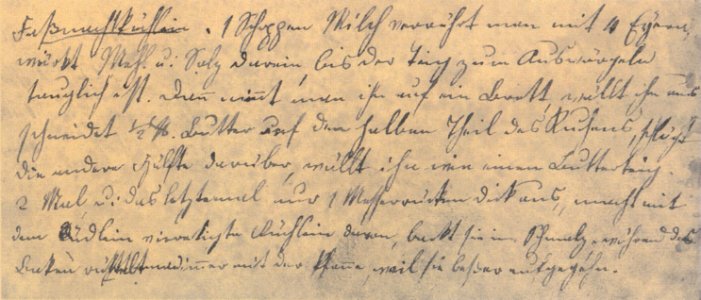 Faßnachtküchlein. 1 Schoppen Milch verrührt man mit 4 Eyern,
würkt Mehl u. Salz darein, bis der Teig zum Auswärgeln
tauglich ist. Dann nimmt man ihn auf ein Brett, wällt ihn aus
schneidet ½ ℔. Butter auf den halben Theil des Kuchens, schlägt
die andere Hälfte darüber, wällt ihn wie einen Butterteig
2 Mal, u. das letztemal nur 1 Messerrücken dick aus, macht mit
dem Rädlein viereckigte Küchlein daraus, backt sie in Schmalz, während des
Backens man immer mit der Pfanne, weil sie beßer aufgehen.